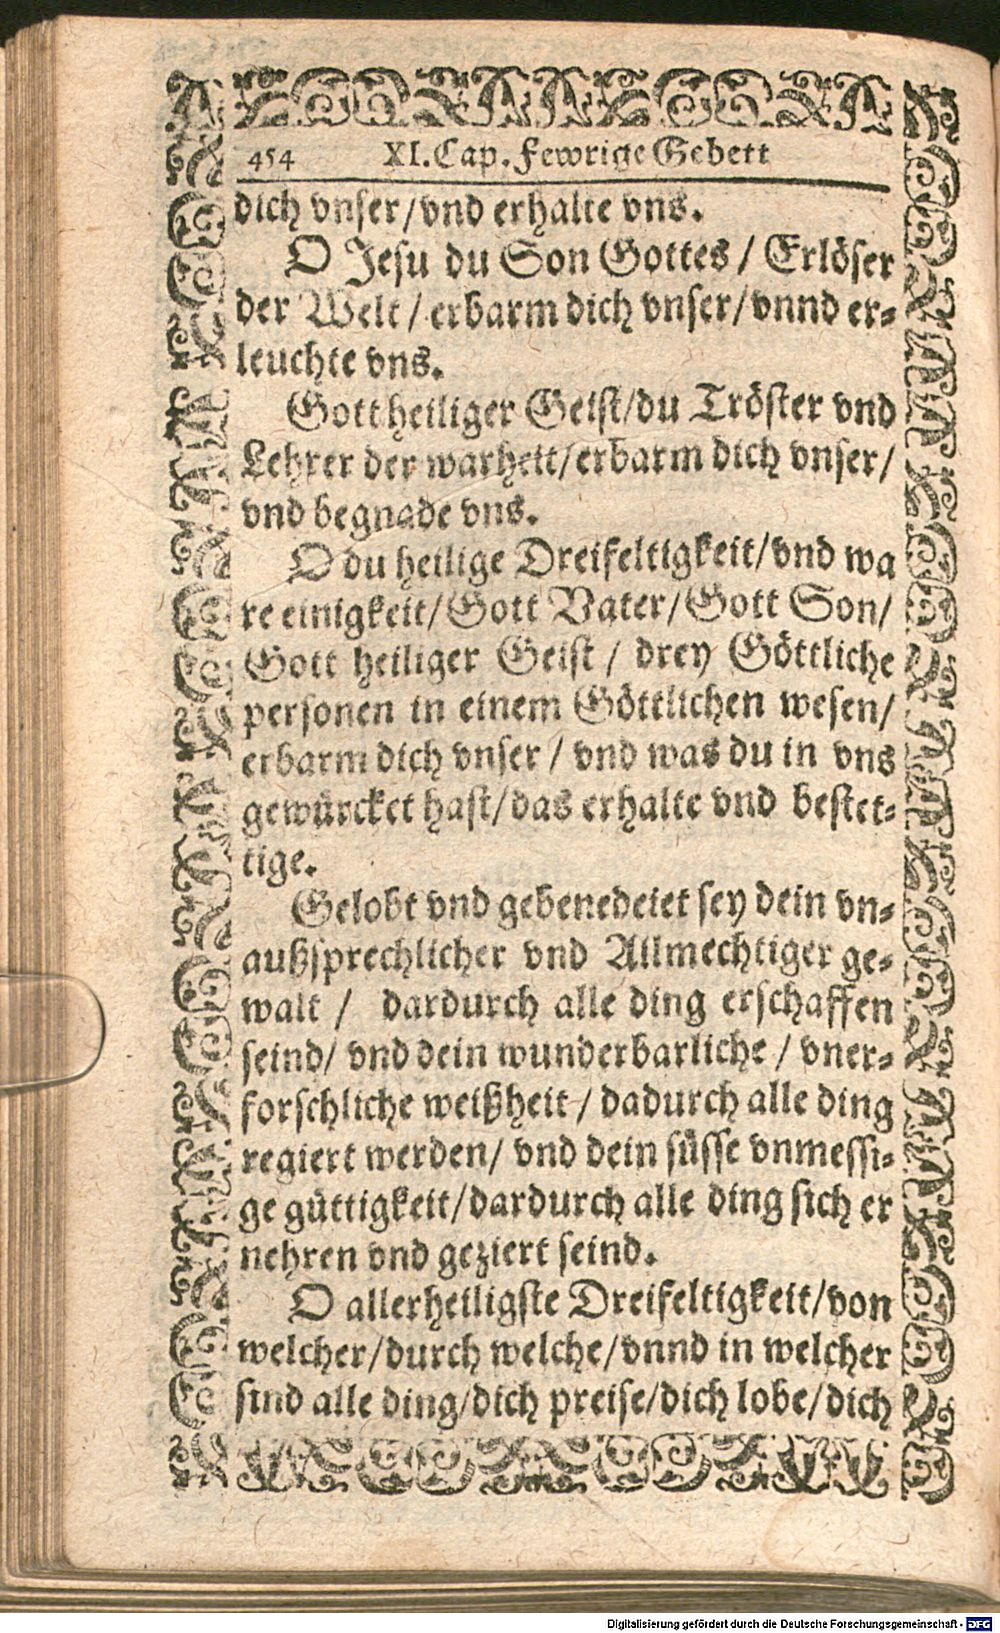 454 XI. Cap. Fewrige Gebett
dich vnser/vnd erhalte vns.
O Jesu du Son Gottes / Erlöser
der Welt / erbarm dich vnser/ vnnd er-
leuchte vns.
Gott heiliger Geist/du Tröster vnd
Lehrer der warheit/erbarm dich vnser/
vnd begnade vns.
O du heilige Dreifeltigkeit/vnd wa
re einigkeit/Gott Vater/Gott Son/
Gott heiliger Geist / drey Göttliche
personen in einem Göttlichen wesen/
erbarm dich vnser / vnd was du in vns
gewürcket hast/das erhalte vnd bestet-
tige.
Gelobt vnd gebenedeiet sey dein vn-
außsprechlicher vnd Allmechtiger ge-
walt / dardurch alle ding erschaffen
seind/ vnd dein wunderbarliche / vner-
forschliche weißheit / dadurch alle ding
regiert werden/ vnd dein süsse vnmessi-
ge güttigkeit/dardurch alle ding sich er
nehren vnd geziert seind.
O allerheiligste Dreifeltigkeit/von
welcher/durch welche/vnnd in welcher
sind alle ding/dich preise/dich lobe/dich
Digitalisierung gefördert durch die Deutsche Forschungsgemeinschaft - DFG